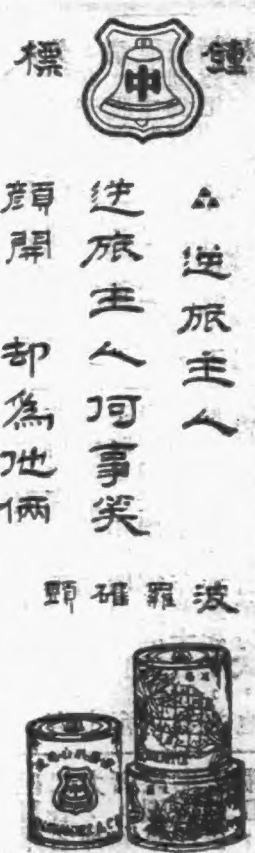 鍾 中 標
逆旅主人
逆旅主人何事笑
顏開 却為他倆
波羅罐頭